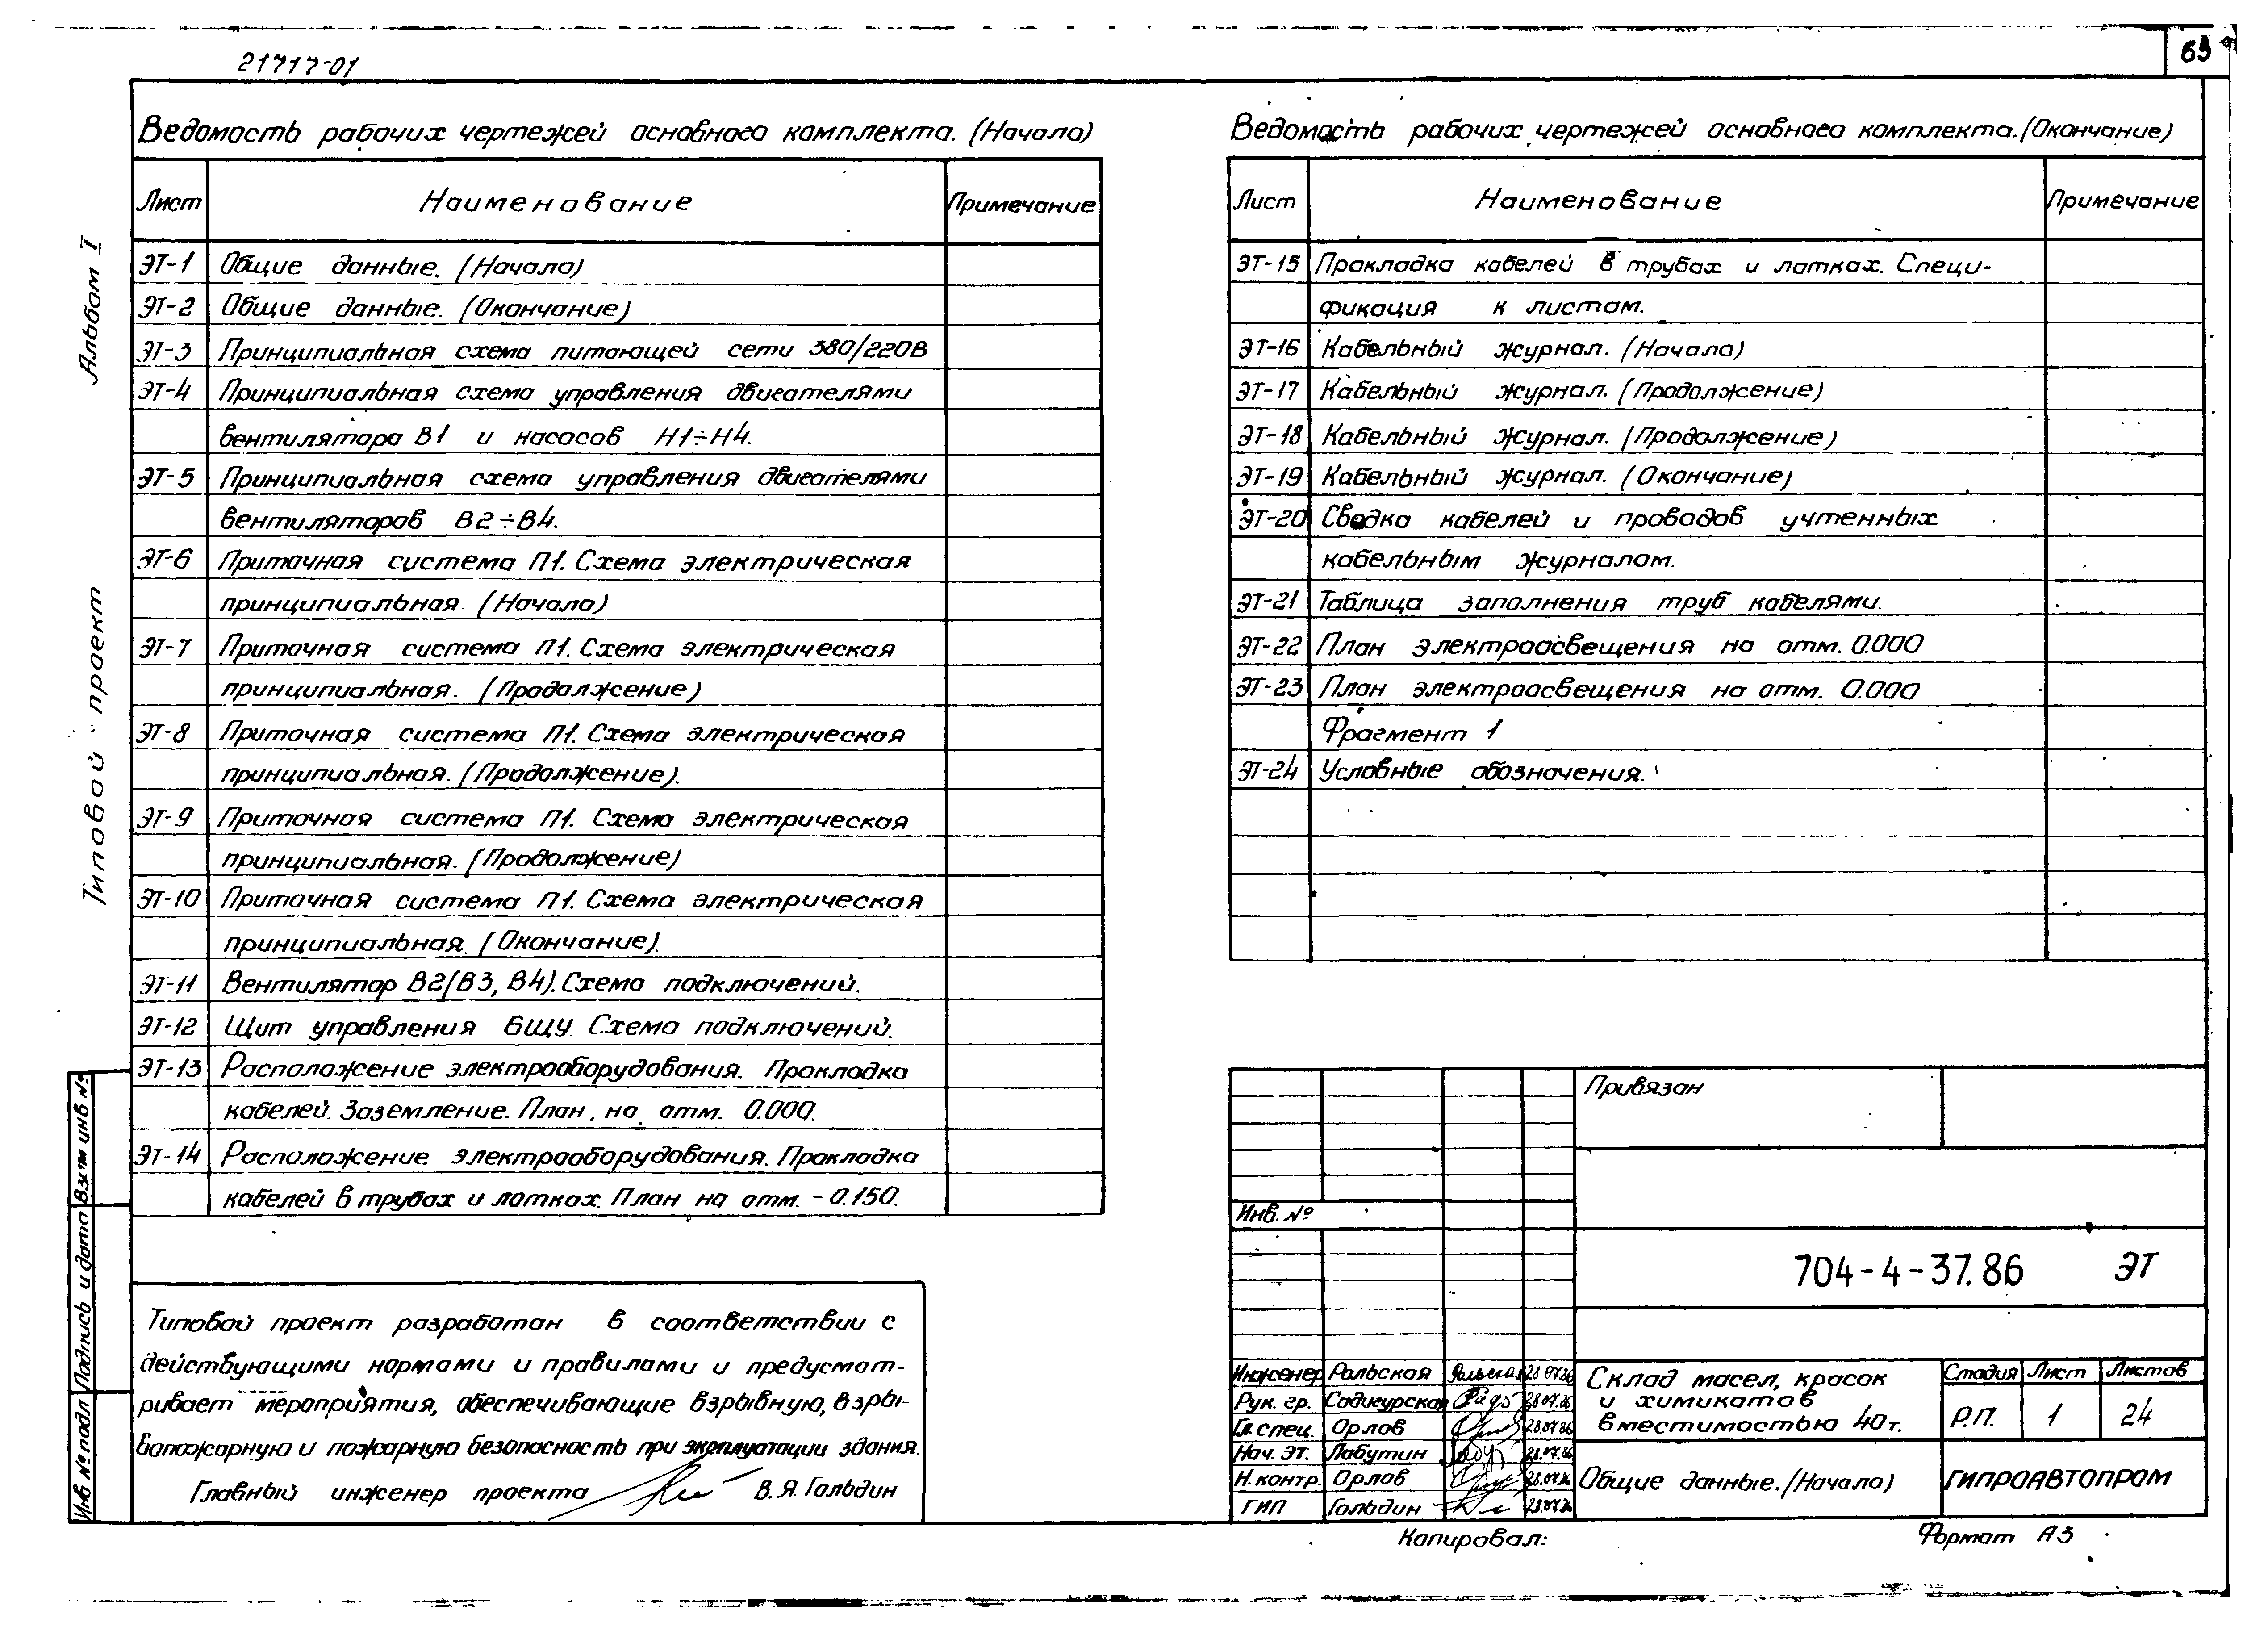 21717-01
63
Альбом I
Типовой проект
Ведомость рабочих чертежей основного комплекта. (Начало)
Лист Наименование Примечание
ЭТ-1 Общие данные. (Начало)
ЭТ-2 Общие данные. (Окончание)
ЭТ-3 Принципиальная схема питающей сети 380/220В
ЭТ-4 Принципиальная схема управления двигателями
вентилятора В1 и насосов Н1÷Н4.
ЭТ-5 Принципиальная схема управления двигателями
вентиляторов В2÷В4.
ЭТ-6 Приточная система П1. Схема электрическая
принципиальная. (Начало)
ЭТ-7 Приточная система П1. Схема электрическая
принципиальная. (Продолжение)
ЭТ-8 Приточная система П1. Схема электрическая
принципиальная. (Продолжение).
ЭТ-9 Приточная система П1. Схема электрическая
принципиальная. (Продолжение)
ЭТ-10 Приточная система П1. Схема электрическая
принципиальная. (Окончание).
ЭТ-11 Вентилятор В2(В3, В4). Схема подключений.
ЭТ-12 Щит управления БЩУ. Схема подключений.
ЭТ-13 Расположение электрооборудования. Прокладка
кабелей. Заземление. План на отм. 0.000.
ЭТ-14 Расположение электрооборудования. Прокладка
кабелей в трубах и лотках. План на отм. -0.150.
Ведомость рабочих чертежей основного комплекта. (Окончание)
Лист Наименование Примечание
ЭТ-15 Прокладка кабелей в трубах и лотках. Специ-
фикация к листам.
ЭТ-16 Кабельный журнал. (Начало)
ЭТ-17 Кабельный журнал. (Продолжение)
ЭТ-18 Кабельный журнал. (Продолжение)
ЭТ-19 Кабельный журнал. (Окончание)
ЭТ-20 Сводка кабелей и проводов учтенных
кабельным журналом.
ЭТ-21 Таблица заполнения труб кабелями.
ЭТ-22 План электроосвещения на отм. 0.000
ЭТ-23 План электроосвещения на отм. 0.000
Фрагмент 1
ЭТ-24 Условные обозначения.
Типовой проект разработан в соответствии с
действующими нормами и правилами и предусмат-
ривает мероприятия, обеспечивающие взрывную, взры-
вопожарную и пожарную безопасность при эксплуатации здания.
Главный инженер проекта В.Я. Гольдин
Инв № подл Подпись и дата Взам инв №
Привязан
Инв. №
704-4-37.86 ЭТ
Инженер Рольская 28.07.86
Рук. гр. Садигурская 28.07.86
Гл. спец. Орлов 28.07.86
Нач. ЭТ. Лабутин 28.07.86
Н. контр. Орлов 28.07.86
ГИП Гольдин 28.07.86
Склад масел, красок
и химикатов
вместимостью 40т.
Стадия Лист Листов
Р.П. 1 24
Общие данные. (Начало)
ГИПРОАВТОПРОМ
Копировал:
Формат А3